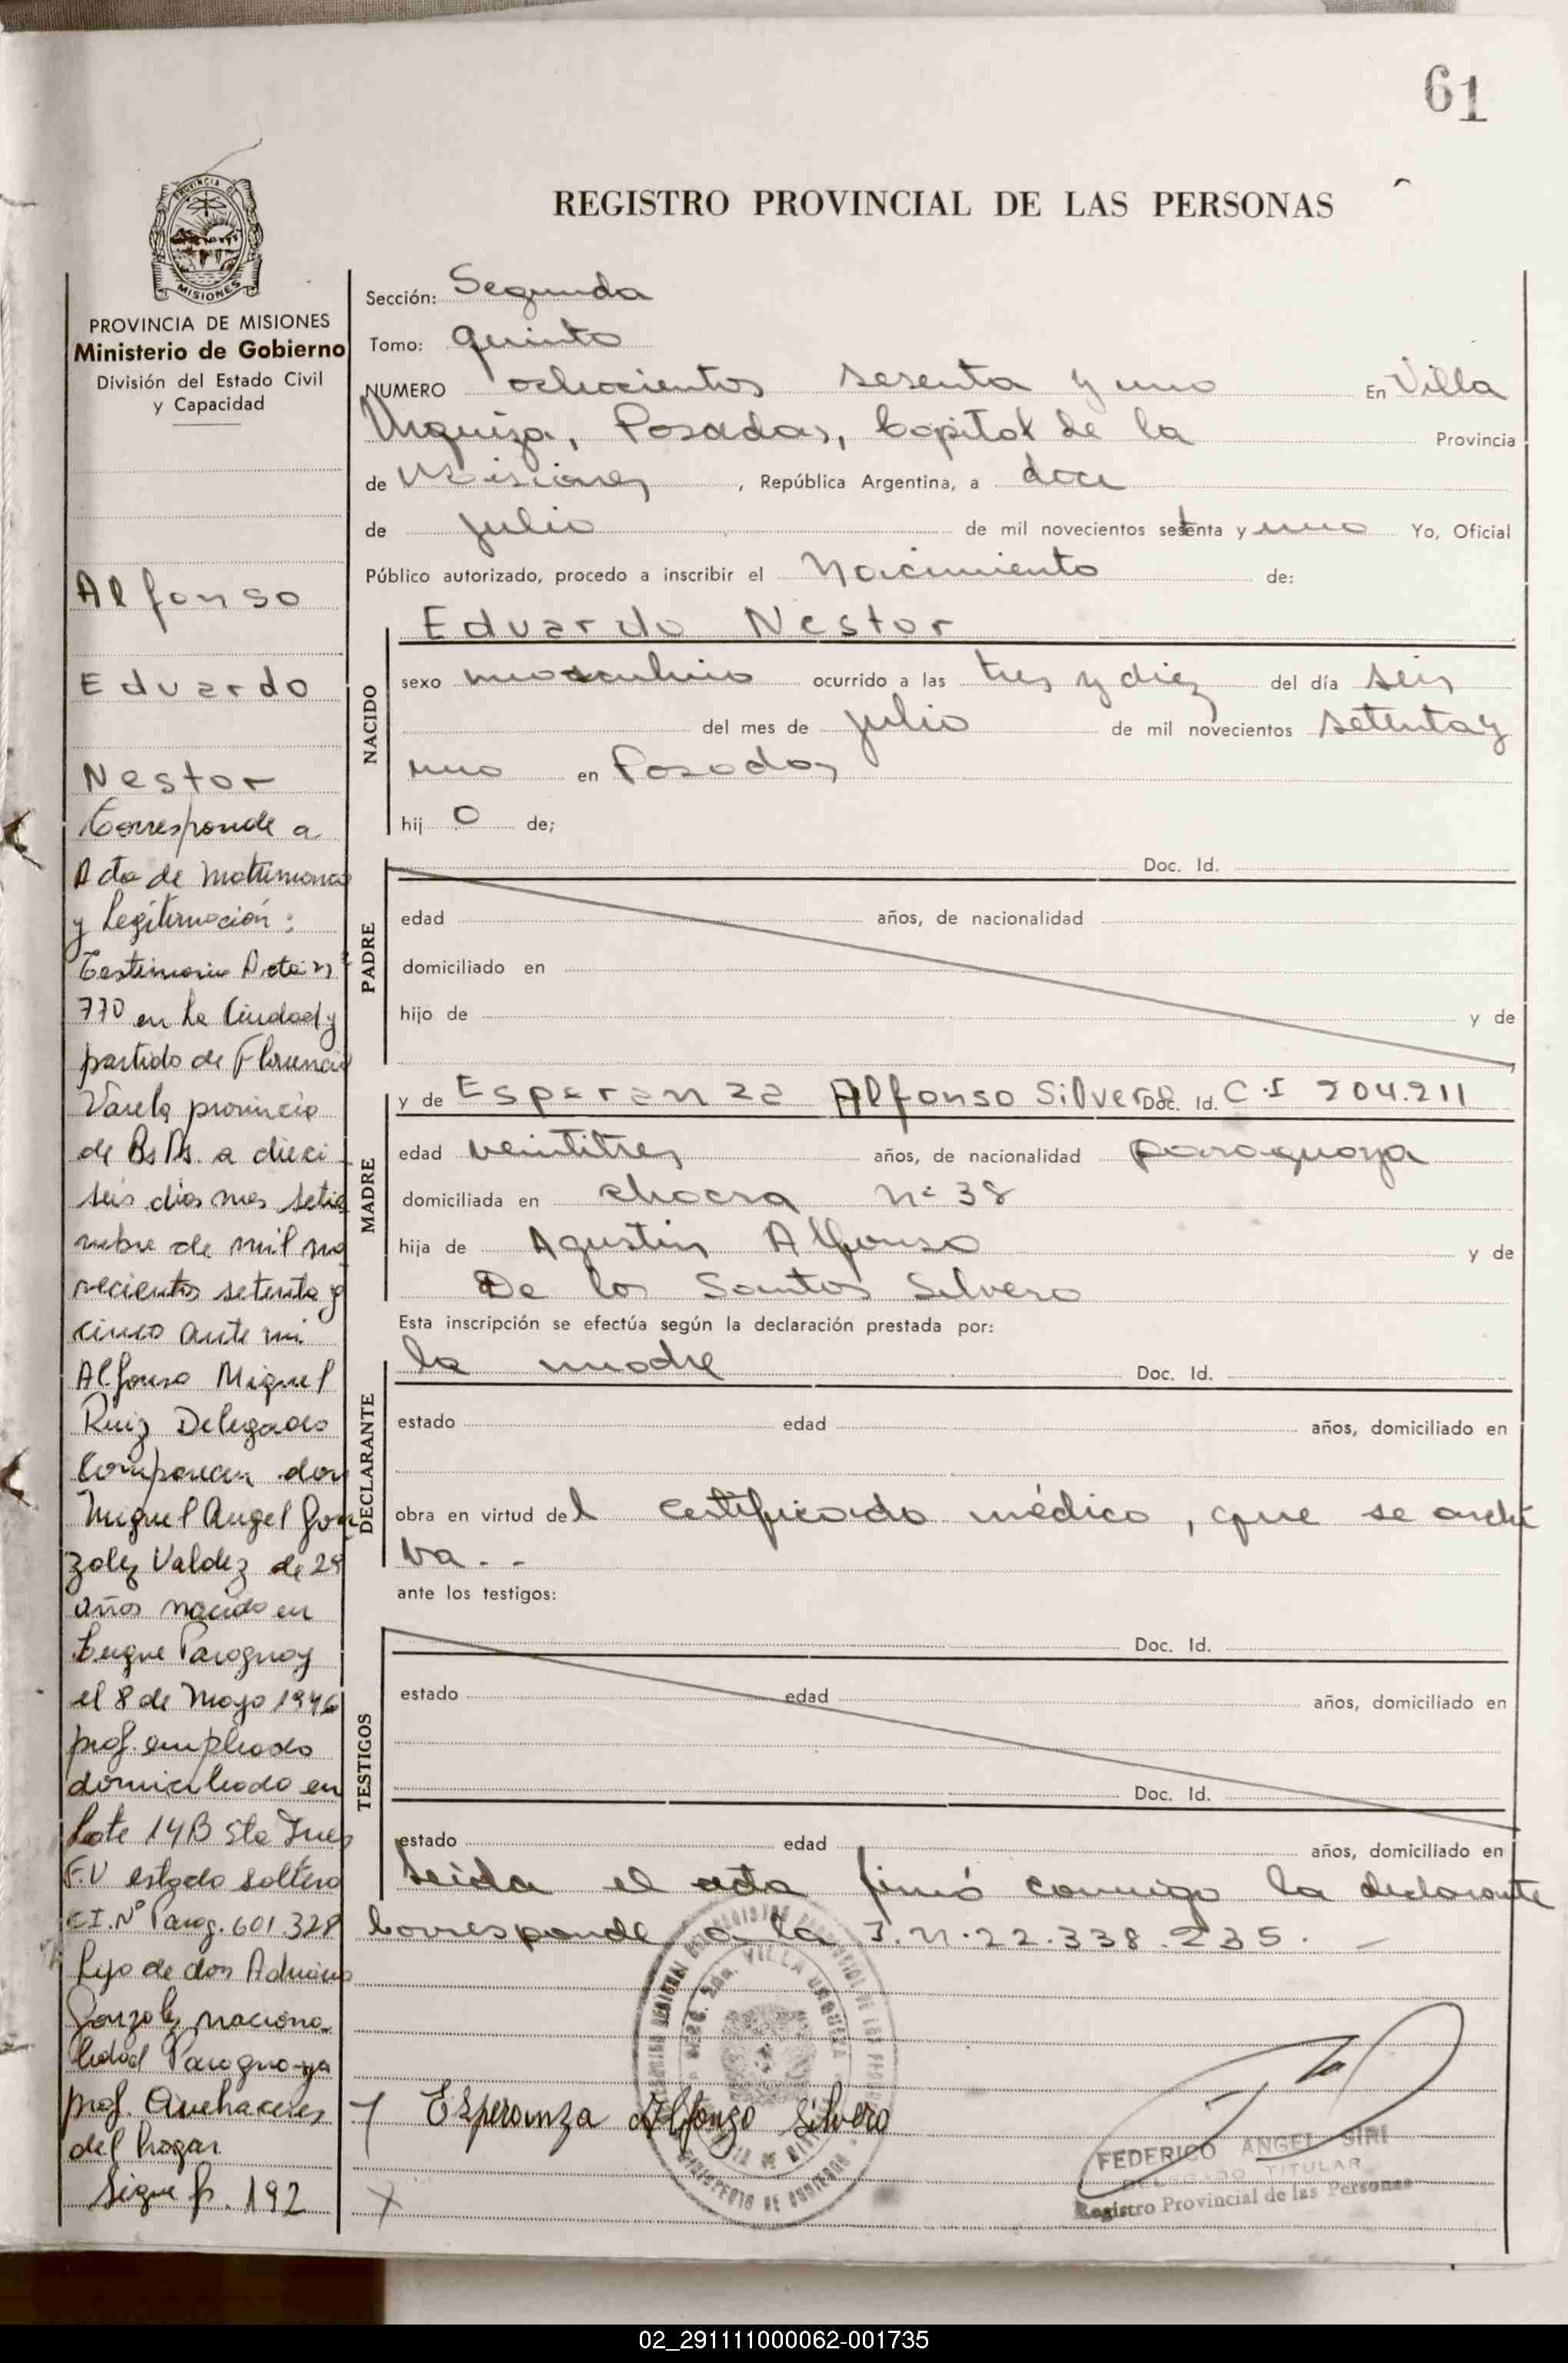 61
REGISTRO PROVINCIAL DE LAS PERSONAS
PROVINCIA DE MISIONES
Ministerio de Gobierno
División del Estado Civil
y Capacidad
Alfonso
Eduardo
Nestor
Corresponde a
Acta de Matrimonio
y Legitimación:
Testimonio Acta nº
770 en la Ciudad y
partido de Florencio
Varela provincia
de Bs As. a dieci
seis dias mes setie
mbre de mil no
vecientos setenta y
cinco ante mi
Alfonso Miguel
Ruiz Delegado
Comparecen don
Miguel Angel Gon
zalez Valdez de 29
años nacido en
Luque Paraguay
el 8 de Mayo 1946
prof. empleado
domiciliado en
Lote 14B Sta Ines
F.V estado soltero
C.I. Nº Parag. 601.328
hijo de don Adriano
Gonzalez naciona
lidad Paraguaya
prof. Quehaceres
del hogar
Sigue f. 192
Sección: Segunda
Tomo: quinto
NUMERO ochocientos sesenta y uno En Villa
Urquiza, Posadas, Capital de la Provincia
de Misiones, República Argentina, a doce
de julio de mil novecientos setenta y uno Yo, Oficial
Público autorizado, procedo a inscribir el Nacimiento de:
NACIDO
Eduardo Nestor
sexo masculino ocurrido a las tres y diez del día seis
del mes de julio de mil novecientos setenta y
uno en Posadas
hij o de;
PADRE
Doc. Id.
edad años, de nacionalidad
domiciliado en
hijo de y de
MADRE
y de Esperanza Alfonso Silvero Doc. Id. C.I 204.211
edad veintitres años, de nacionalidad paraguaya
domiciliada en chacra nº 38
hija de Agustin Alfonso y de
De los Santos Silvero
Esta inscripción se efectúa según la declaración prestada por:
DECLARANTE
la madre Doc. Id.
estado edad años, domiciliado en
obra en virtud del certificado médico, que se archi
va. - -
ante los testigos:
TESTIGOS
Doc. Id.
estado edad años, domiciliado en
Doc. Id.
estado edad años, domiciliado en
Leida el acta firmó conmigo la declarante
Corresponde a la I.N. 22.338.235. -
Esperanza Alfonso Silvero
VILLA URQUIZA
FEDERICO ANGEL SIRI
DELEGADO TITULAR
Registro Provincial de las Personas
02_291111000062-001735